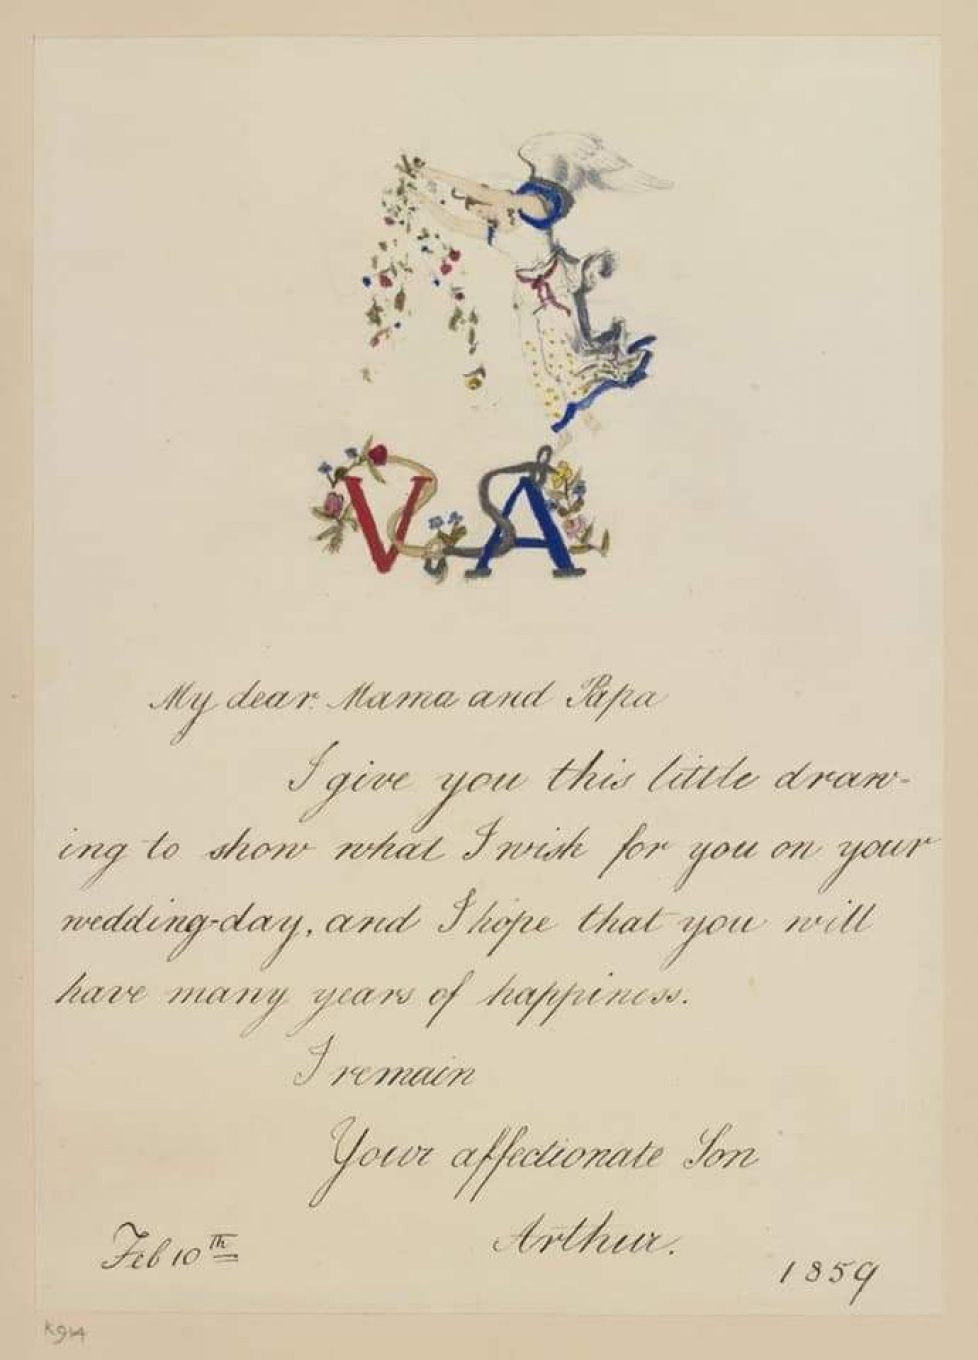 V A
My dear Mama and Papa
I give you this little draw-
ing to show what I wish for you on your
wedding-day, and I hope that you will
have many years of happiness.
I remain
Your affectionate Son
Arthur.
Feb 10th
1859
K914